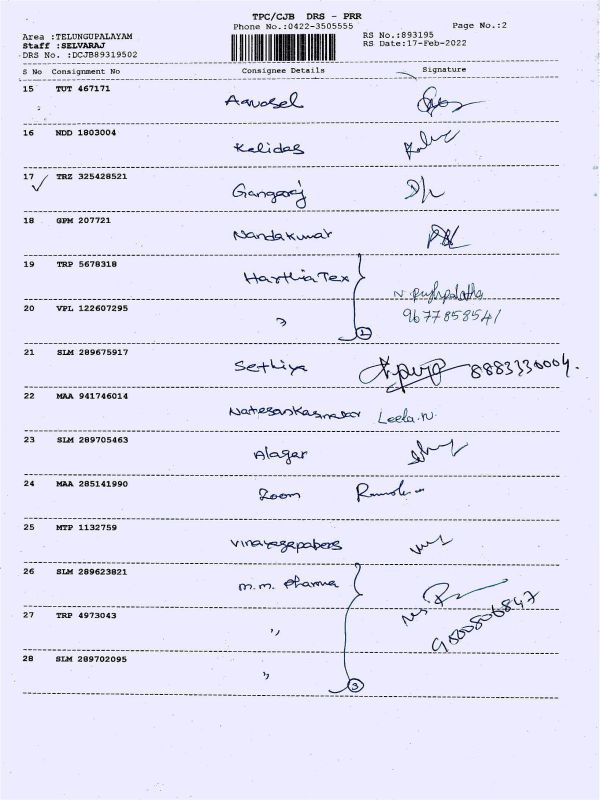 TPC/CJB DRS - PRR
Phone No.:0422-3505555 Page No.:2
Area :TELUNGUPALAYAM RS No.:893195
Staff :SELVARAJ RS Date:17-Feb-2022
DRS No. :DCJB89319502
S No Consignment No Consignee Details Signature
15 TUT 467171
Aquasel
16 NDD 1803004
Kalidas
17 TRZ 325428521
Gangaraj
18 GPM 207721
Nandakumar
19 TRP 5678318
Harthia Tex
N. Pushpalatha
20 VPL 122607295
" 9677858541
2
21 SLM 289675917
Sethiya 8883330004.
22 MAA 941746014
Leela.N.
23 SLM 289705463
Alagar
24 MAA 285141990
Zoom
25 MTP 1132759
Vinayagapapers
26 SLM 289623821
M.M. Pharma
9500806847
27 TRP 4973043
"
28 SLM 289702095
"
3